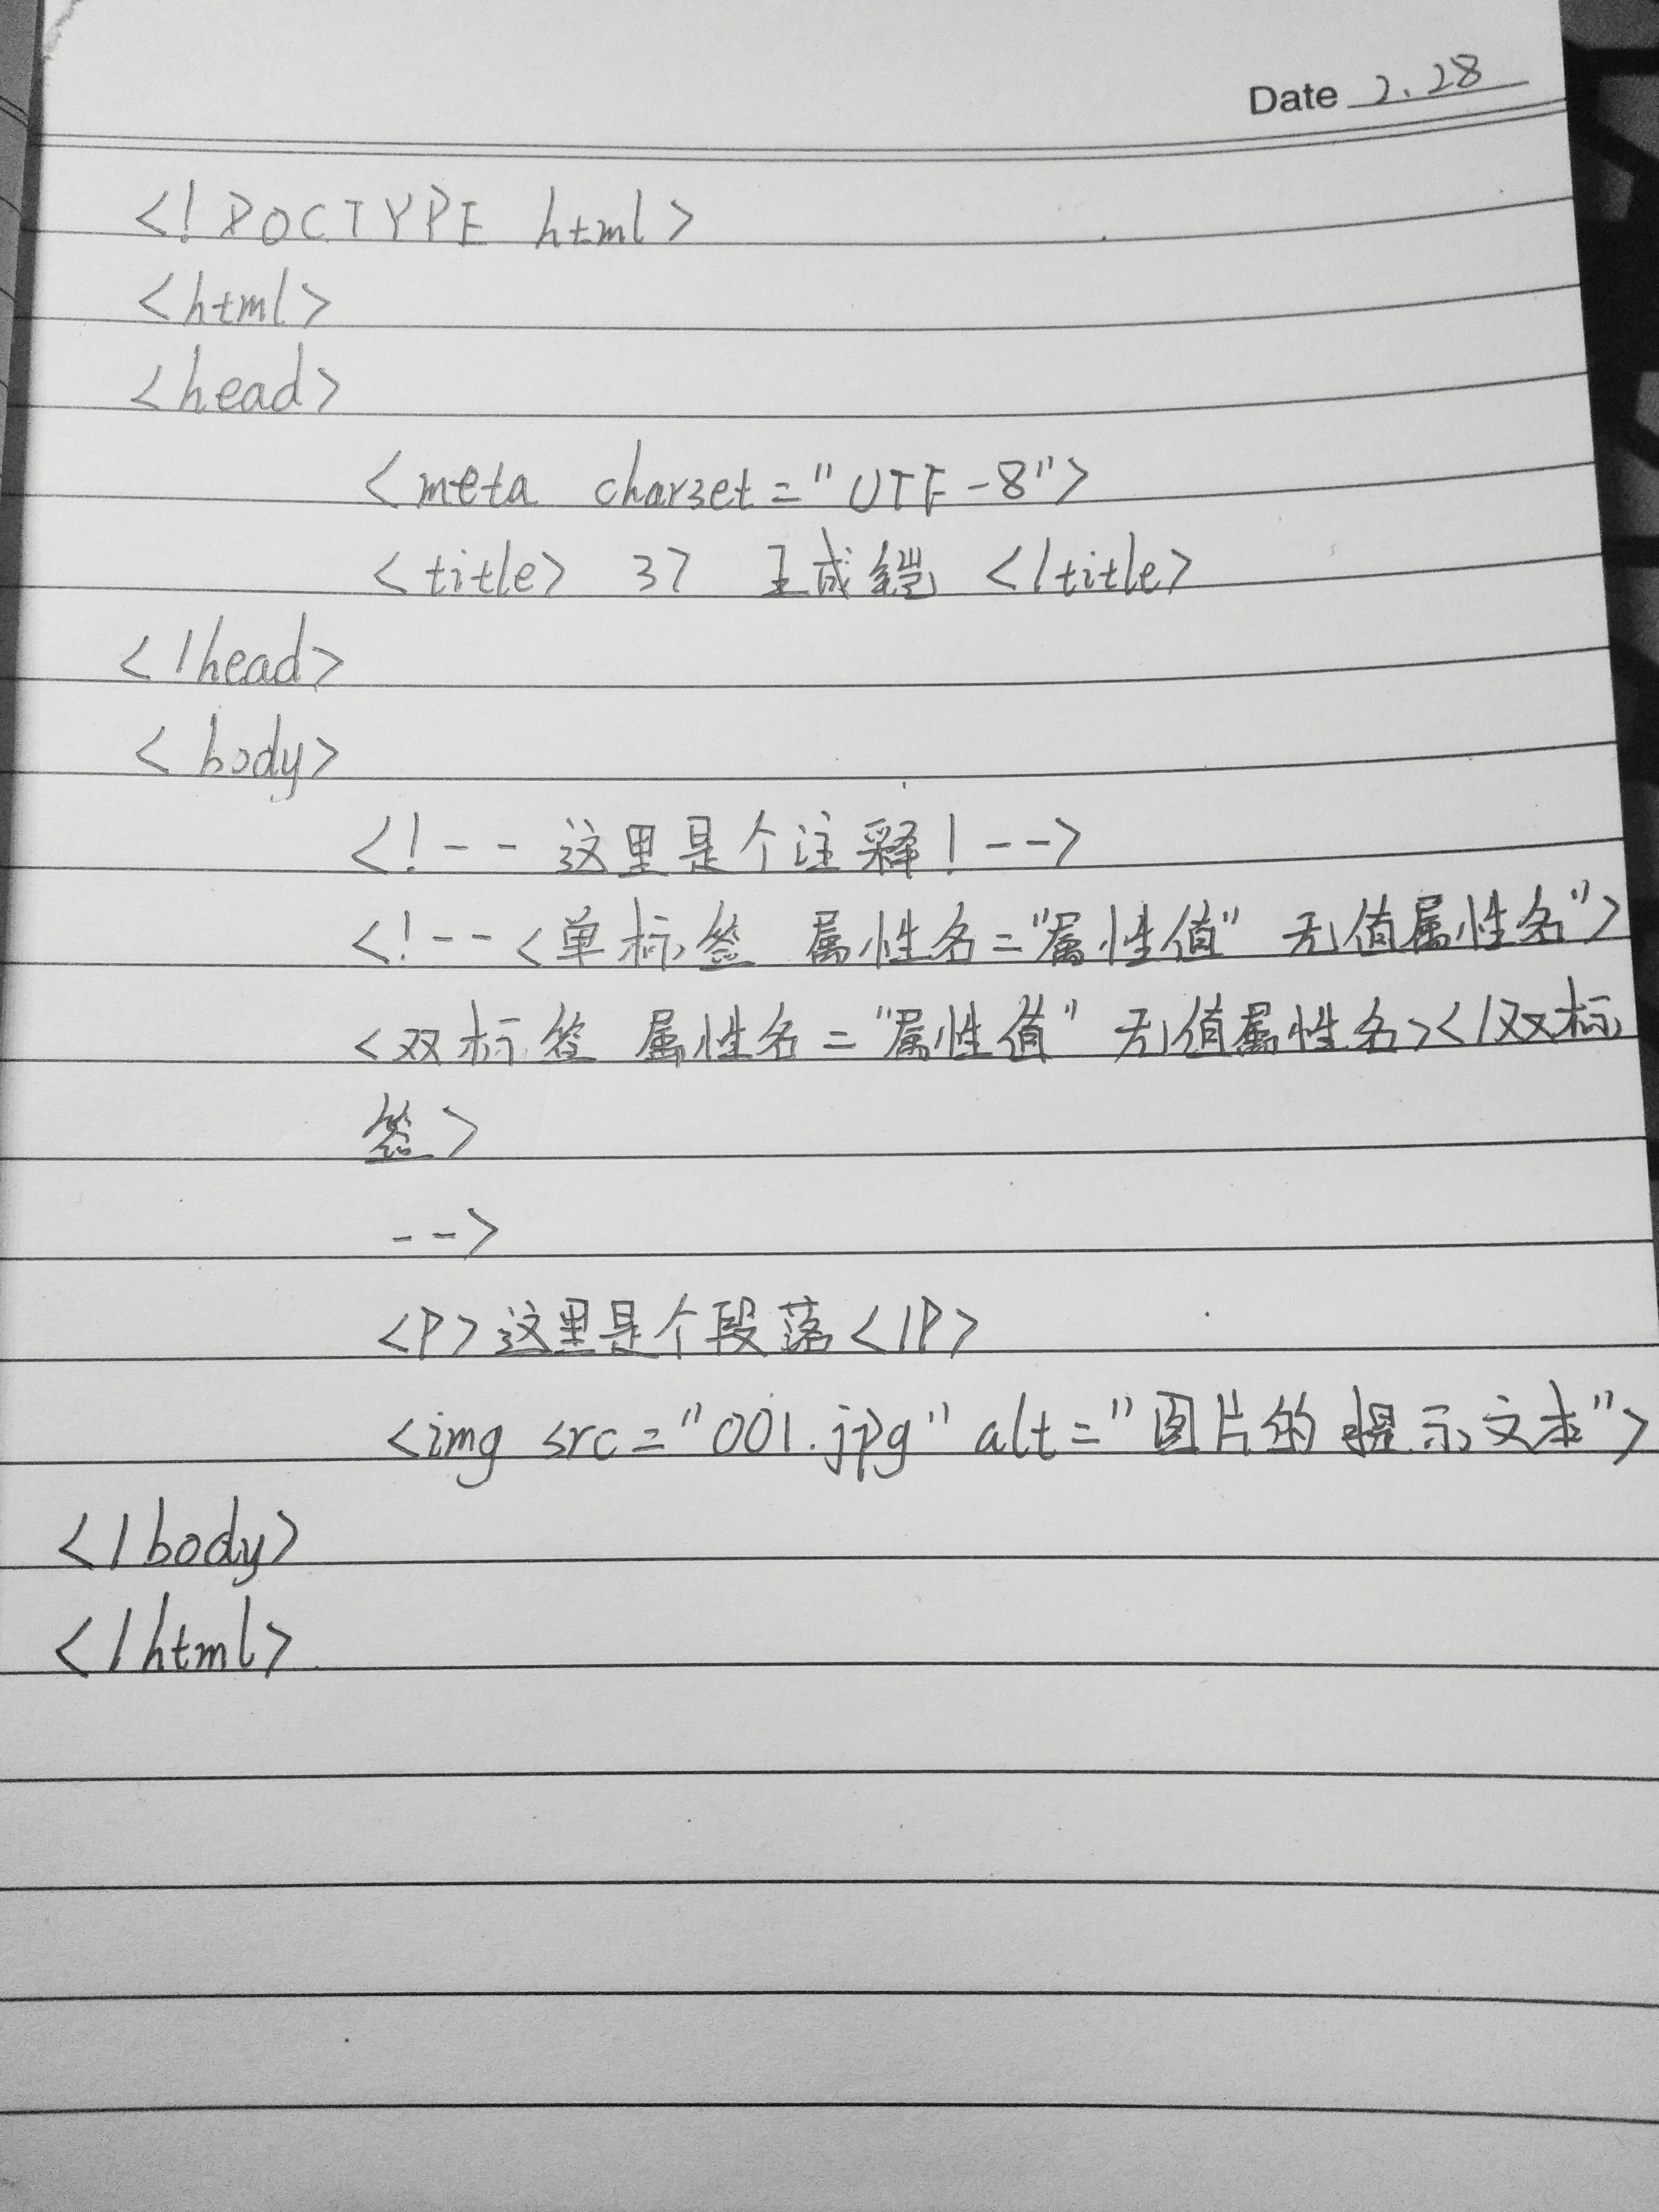 Date 2.28
<!DOCTYPE html>
<html>
<head>
<meta charset="UTF-8">
<title> 37 王成鎧 </title>
</head>
<body>
<!-- 这里是个注释!-->
<!--<单标签 属性名="属性值" 无值属性名">
<双标签 属性名="属性值" 无值属性名></双标
签>
-->
<P>这里是个段落</P>
<img src="001.jpg" alt="图片的提示文本">
</body>
</html>